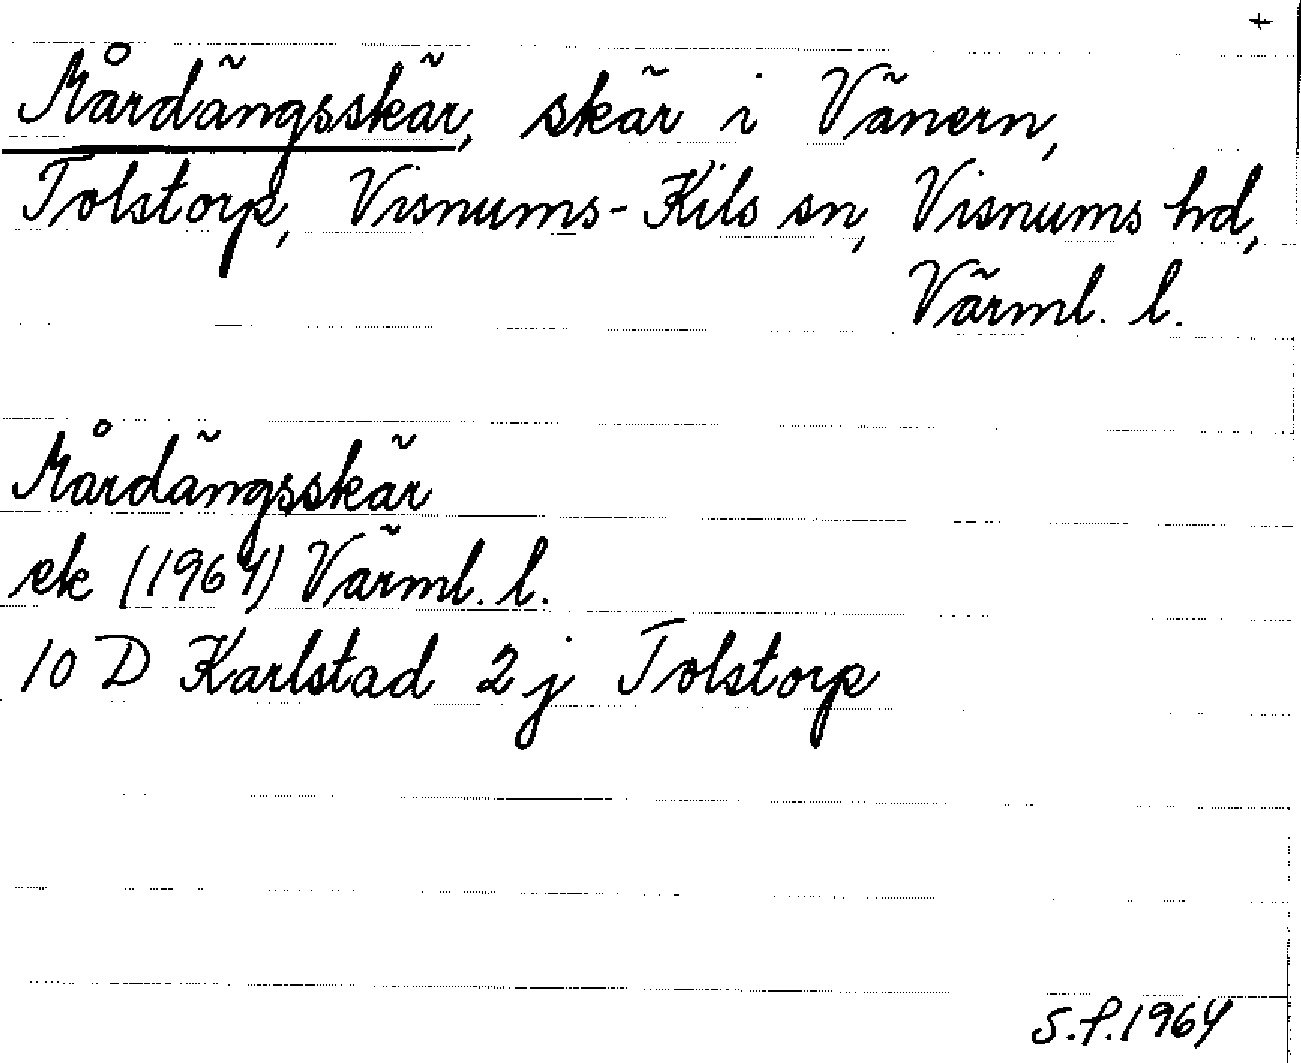 +
Mårdängsskär, skär i Vänern,
Tolstorp, Visnums-Kils sn, Visnums hd,
Värml. l.
Mårdängsskär
ek (1964) Värml. l.
10 D Karlstad 2 j Tolstorp
S.P. 1964